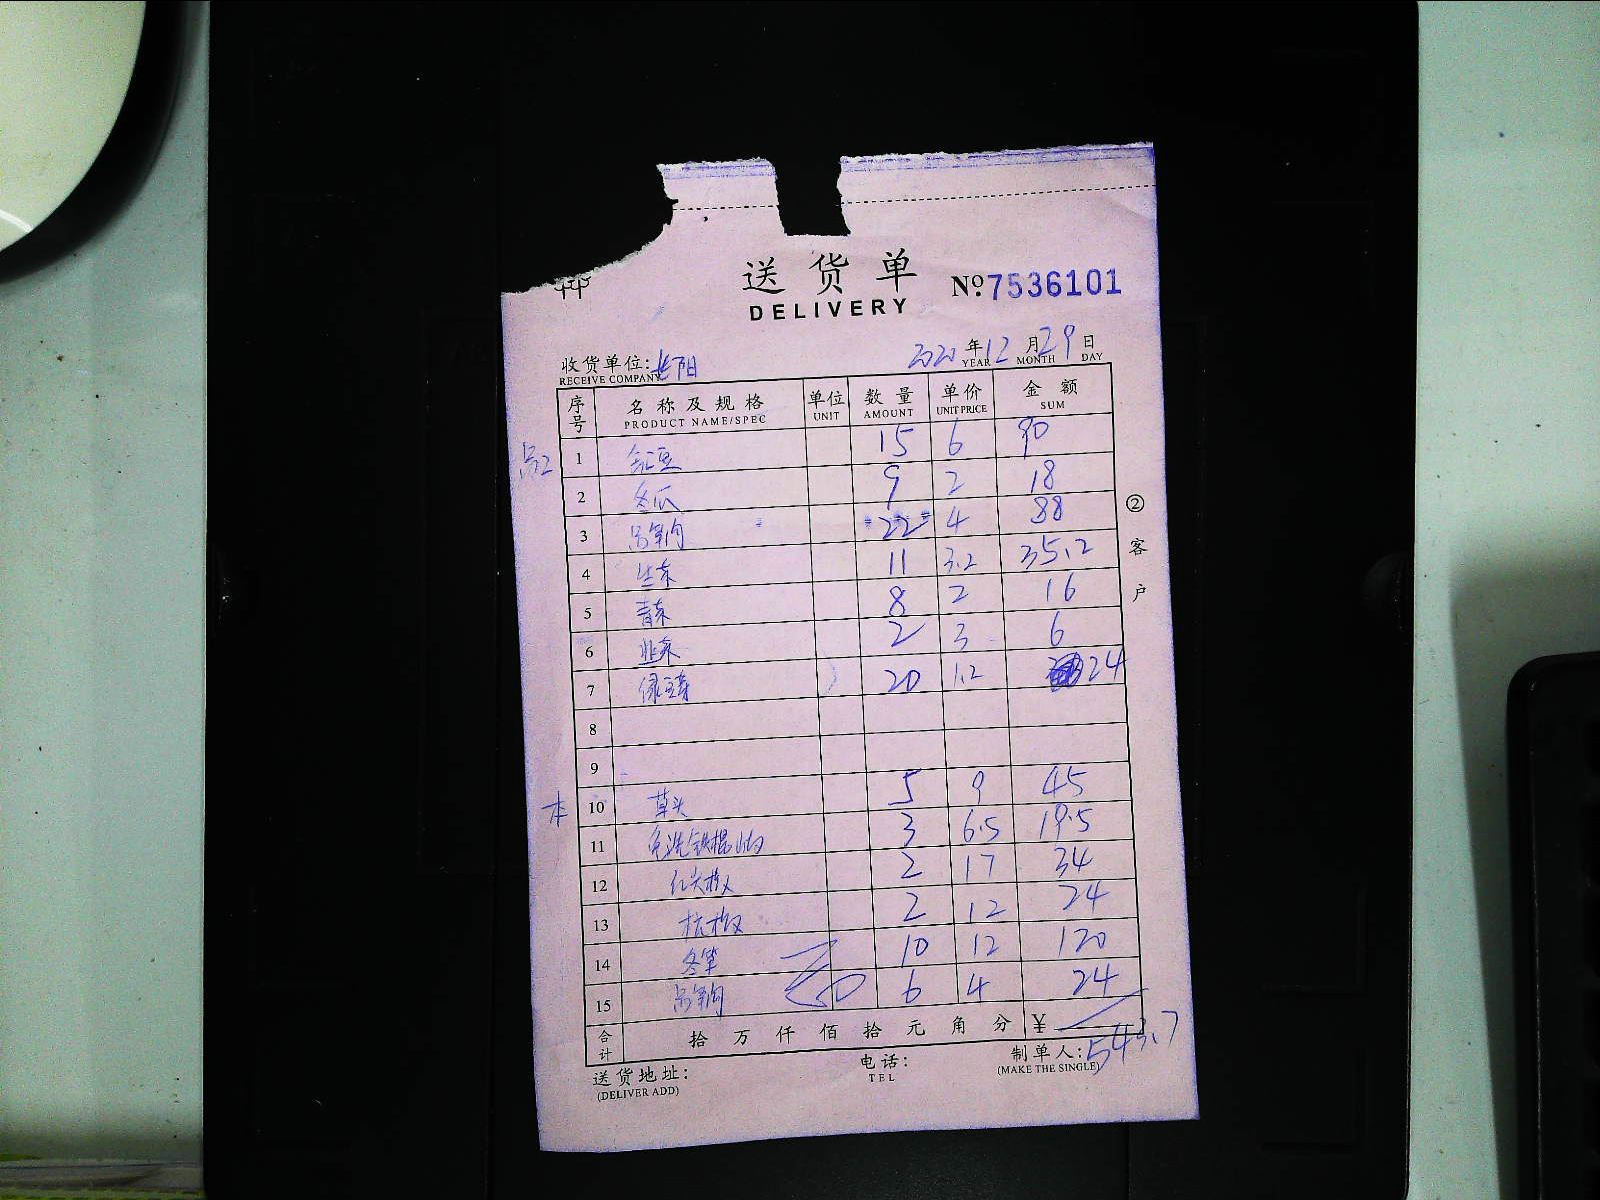 送货单
DELIVERY
No. 7536101
2020 年 12 月 29 日
YEAR MONTH DAY
收货单位:
RECEIVE COMPANY
序号 名称及规格 单位 数量 单价 金额
PRODUCT NAME/SPEC UNIT AMOUNT UNIT PRICE SUM
1 豇豆 15 6 90
2 冬瓜 9 2 18
3 22 4 88
4 生菜 11 3.2 35.2
5 青菜 8 2 16
6 韭菜 2 3 6
7 绿豆芽 20 1.2 24
8
9
本 10 草头 5 9 45
11 免洗铁棍山药 3 6.5 19.5
12 红尖椒 2 17 34
13 杭椒 2 12 24
14 冬笋 10 12 120
15 6 4 24
合计 拾 万 仟 佰 拾 元 角 分 ¥
543.7
送货地址: 电话: 制单人:
(DELIVER ADD) TEL (MAKE THE SINGLE)
②客户